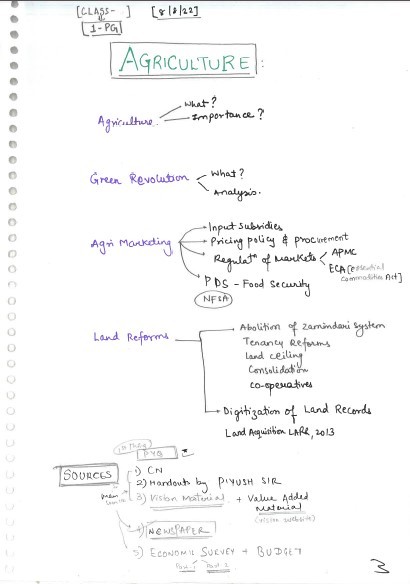 [CLASS- ] [8/8/22]
1-PG
AGRICULTURE :
Agriculture What?
Importance?
Green Revolution What?
Analysis.
Agri Marketing Input subsidies
Pricing policy & procurement
Regulatn of Markets APMC
ECA [essential commodities Act]
PDS - Food Security
NFSA
Land Reforms Abolition of Zamindari System
Tenancy Reforms
Land ceiling
Consolidation
Co-operatives
Digitization of Land Records
Land Acquisition LARR, 2013
PYQ
SOURCES 1) CN
2) Handouts by PIYUSH SIR
3) Vision Material + Value Added Material
(vision website)
4) NEWSPAPER
5) ECONOMIC SURVEY + BUDGET
Part 1 Part 2
3